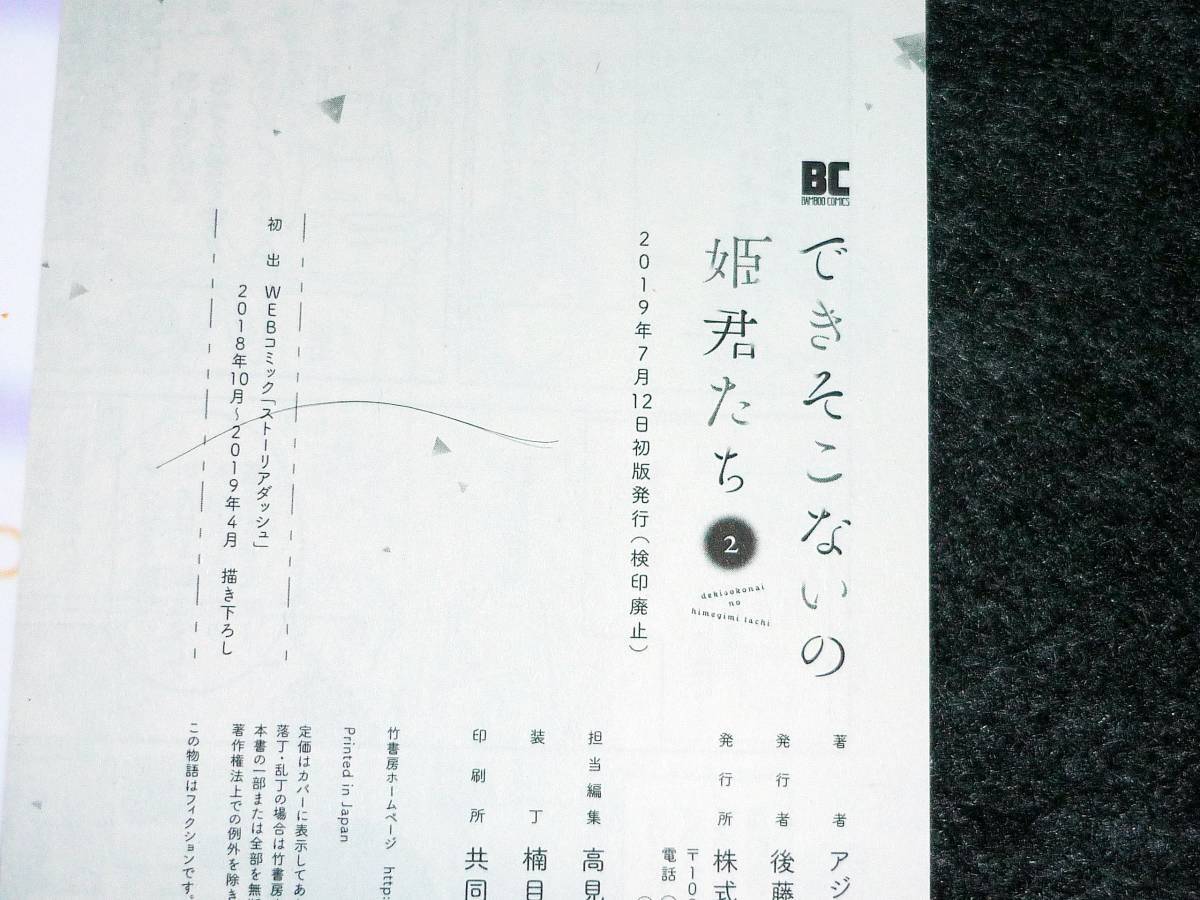 BC
BAMBOO COMICS
できそこないの
姫君たち
2
dekisokonai
no
himegimi tachi
2019年7月12日初版発行(検印廃止)
初出 WEBコミック「ストーリアダッシュ」
2018年10月~2019年4月 描き下ろし
著者 アジ
発行者 後藤
発行所 株式
〒10
電話
担当編集 高見
装丁 楠目
印刷所 共同
竹書房ホームページ http:
Printed in Japan
定価はカバーに表示してあ
落丁・乱丁の場合は竹書房
本書の一部または全部を無
著作権法上での例外を除き
この物語はフィクションです。